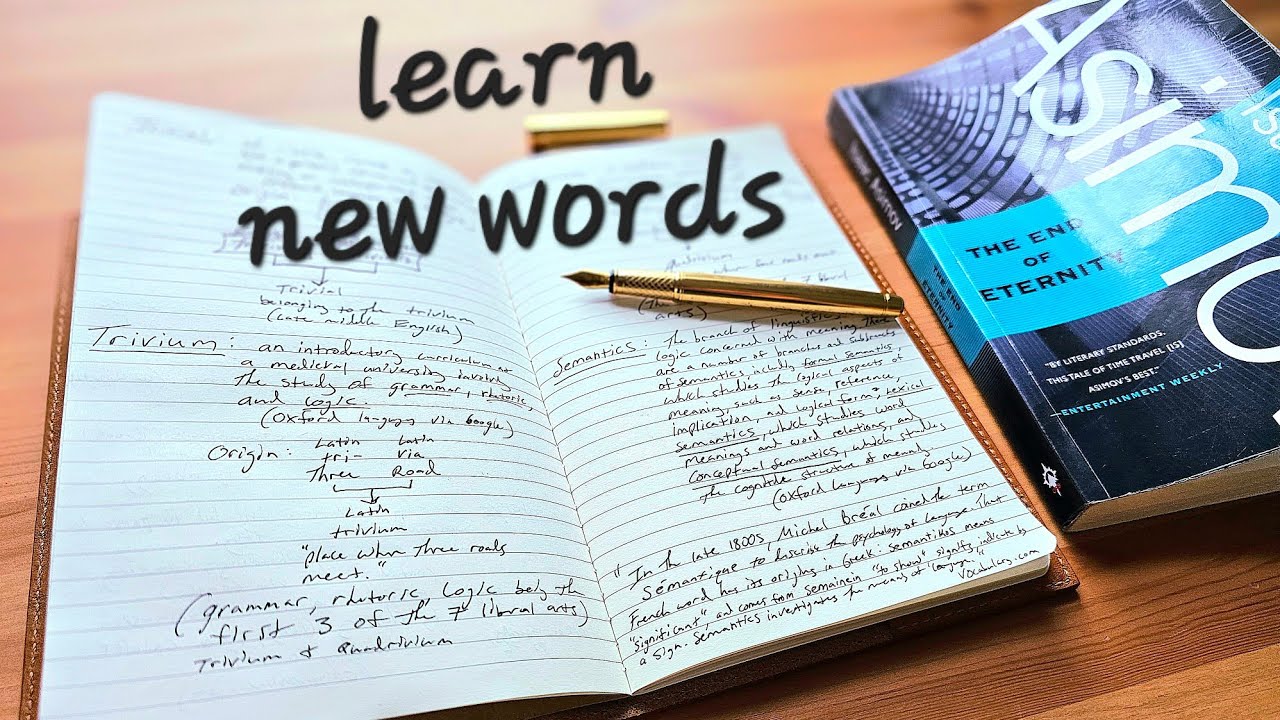 learn
new words
Trivial
belonging to the trivium
(Late middle English)
Trivium: an introductory curriculum at
a medieval university involving
the study of grammar, rhetoric,
and logic.
(Oxford languages via Google)
Latin Latin
Origin: tri- via
Three Road
Latin
trivium
"place where three roads
meet."
(grammar, rhetoric, logic being the
first 3 of the 7 liberal arts)
Trivium & Quadrivium
quadrivium
when four roads
liberal
arts)
Semantics: The branch of linguistics
logic concerned with meaning. There
are a number of branches and subbranches
of semantics, including formal semantics
which studies the logical aspects of
meaning, such as sense, reference,
implication, and logical form, lexical
semantics, which studies word
meanings and word relations, and
conceptual semantics, which studies
the cognitive structure of meaning
(Oxford languages via Google)
"In the late 1800s, Michel Bréal coined the term
sémantique to describe the psychology of language. That
French word has its origins in Greek: semantikos means
"significant", and comes from semainein "to show, signify, indicate by
a sign. Semantics investigates the meaning of language."
Vocabulary.com
Isaac Asimov
THE END
OF
ETERNITY
Asimo
THE END
OF
ETERNITY
"BY LITERARY STANDARDS,
THIS TALE OF TIME TRAVEL [IS]
ASIMOV'S BEST."
—ENTERTAINMENT WEEKLY